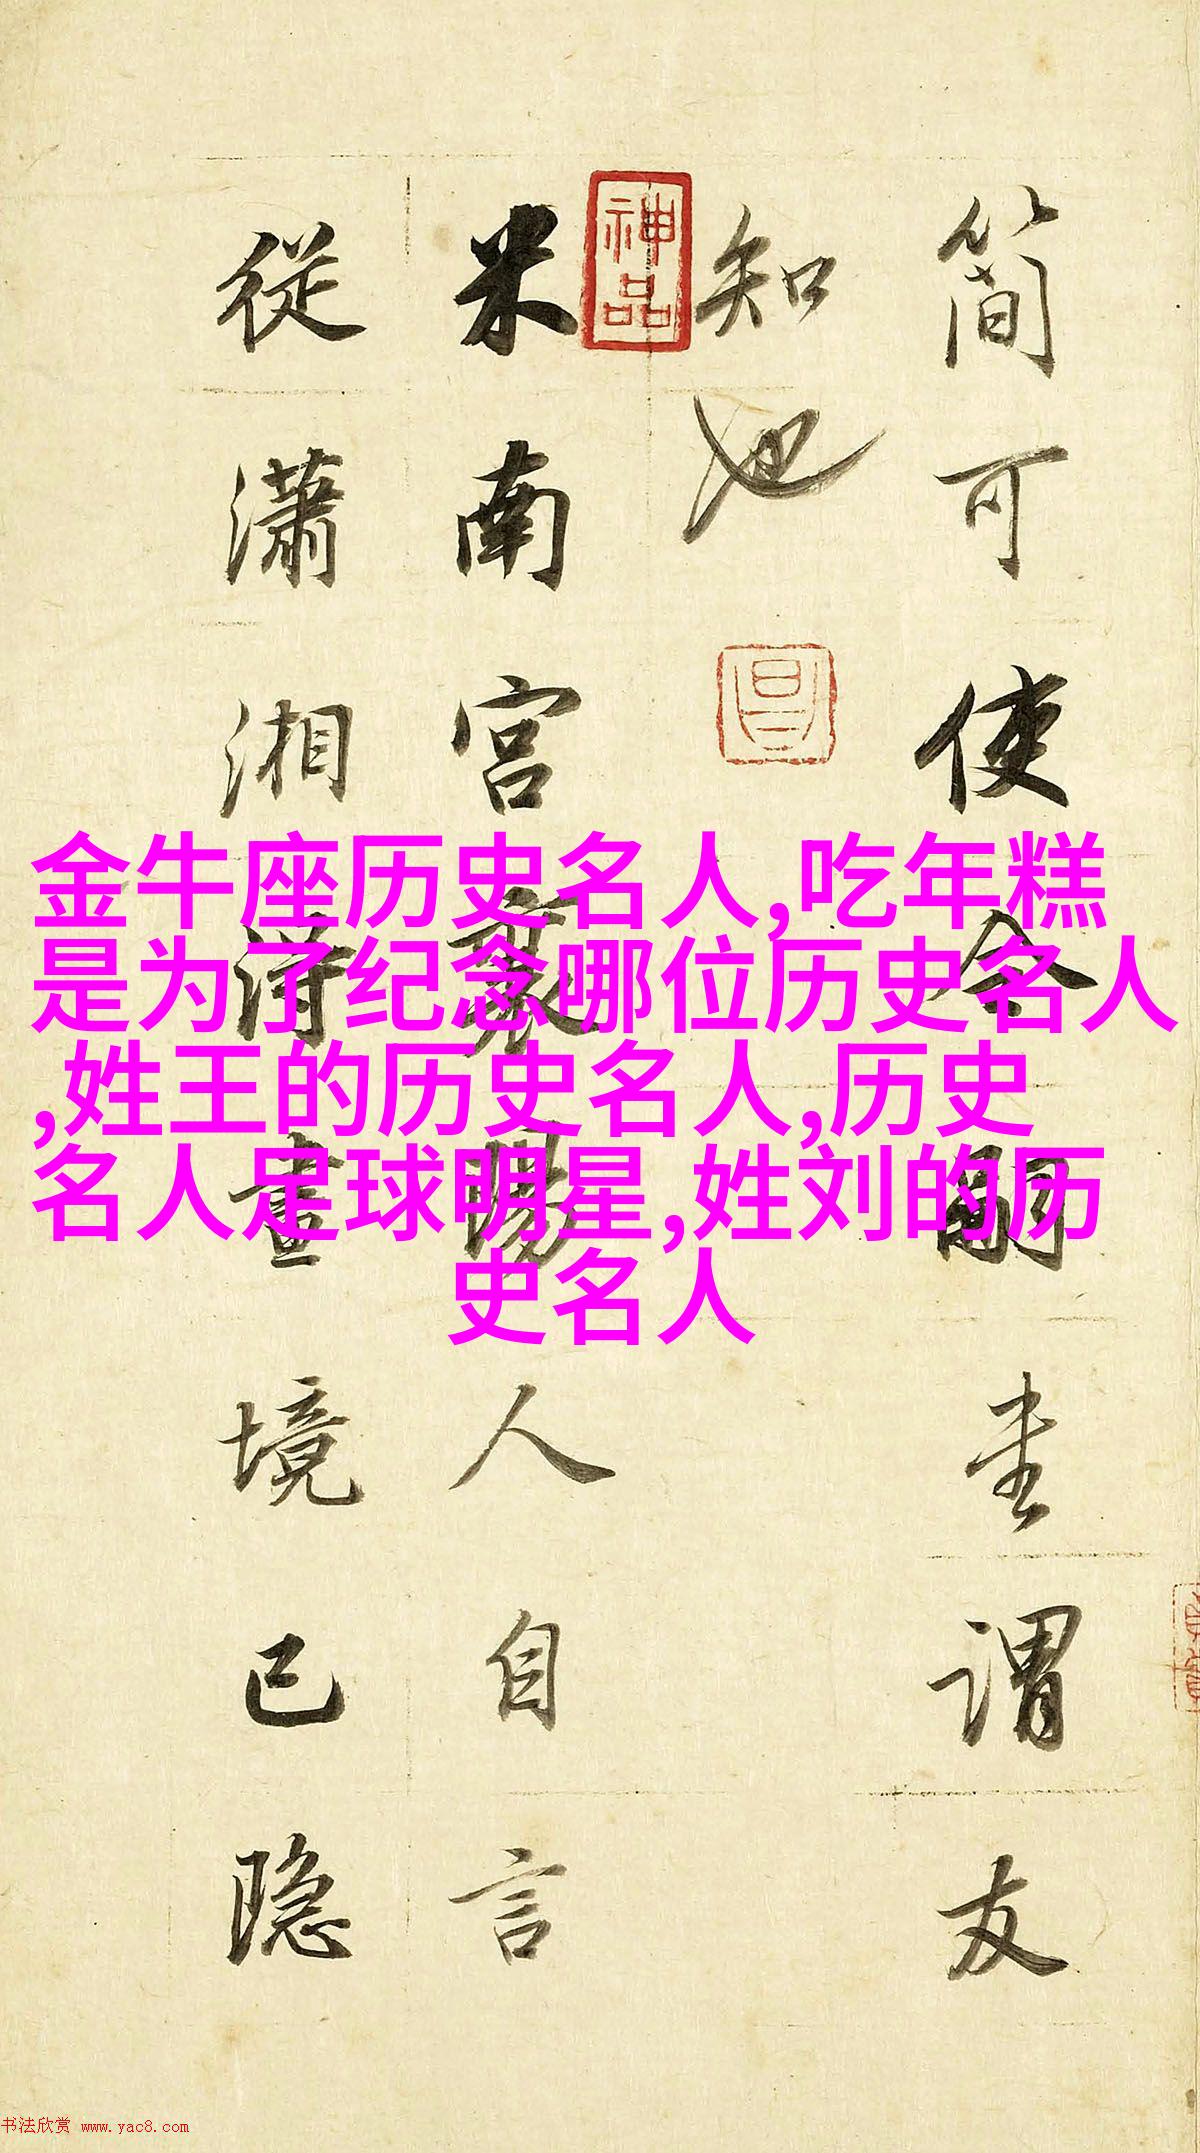 簡可使令嗣謂友
知也
米南宮襄陽人自言
從瀟湘得畫境已隐
神品
金牛座历史名人,吃年糕
是为了纪念哪位历史名人
,姓王的历史名人,历史
名人足球明星,姓刘的历
史名人
书法欣赏 www.yac8.com